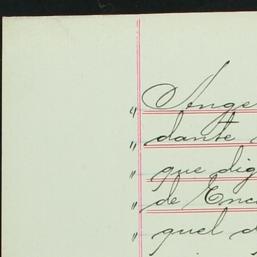 " Ange
" dante
" que dig
" de Enc
" quel d